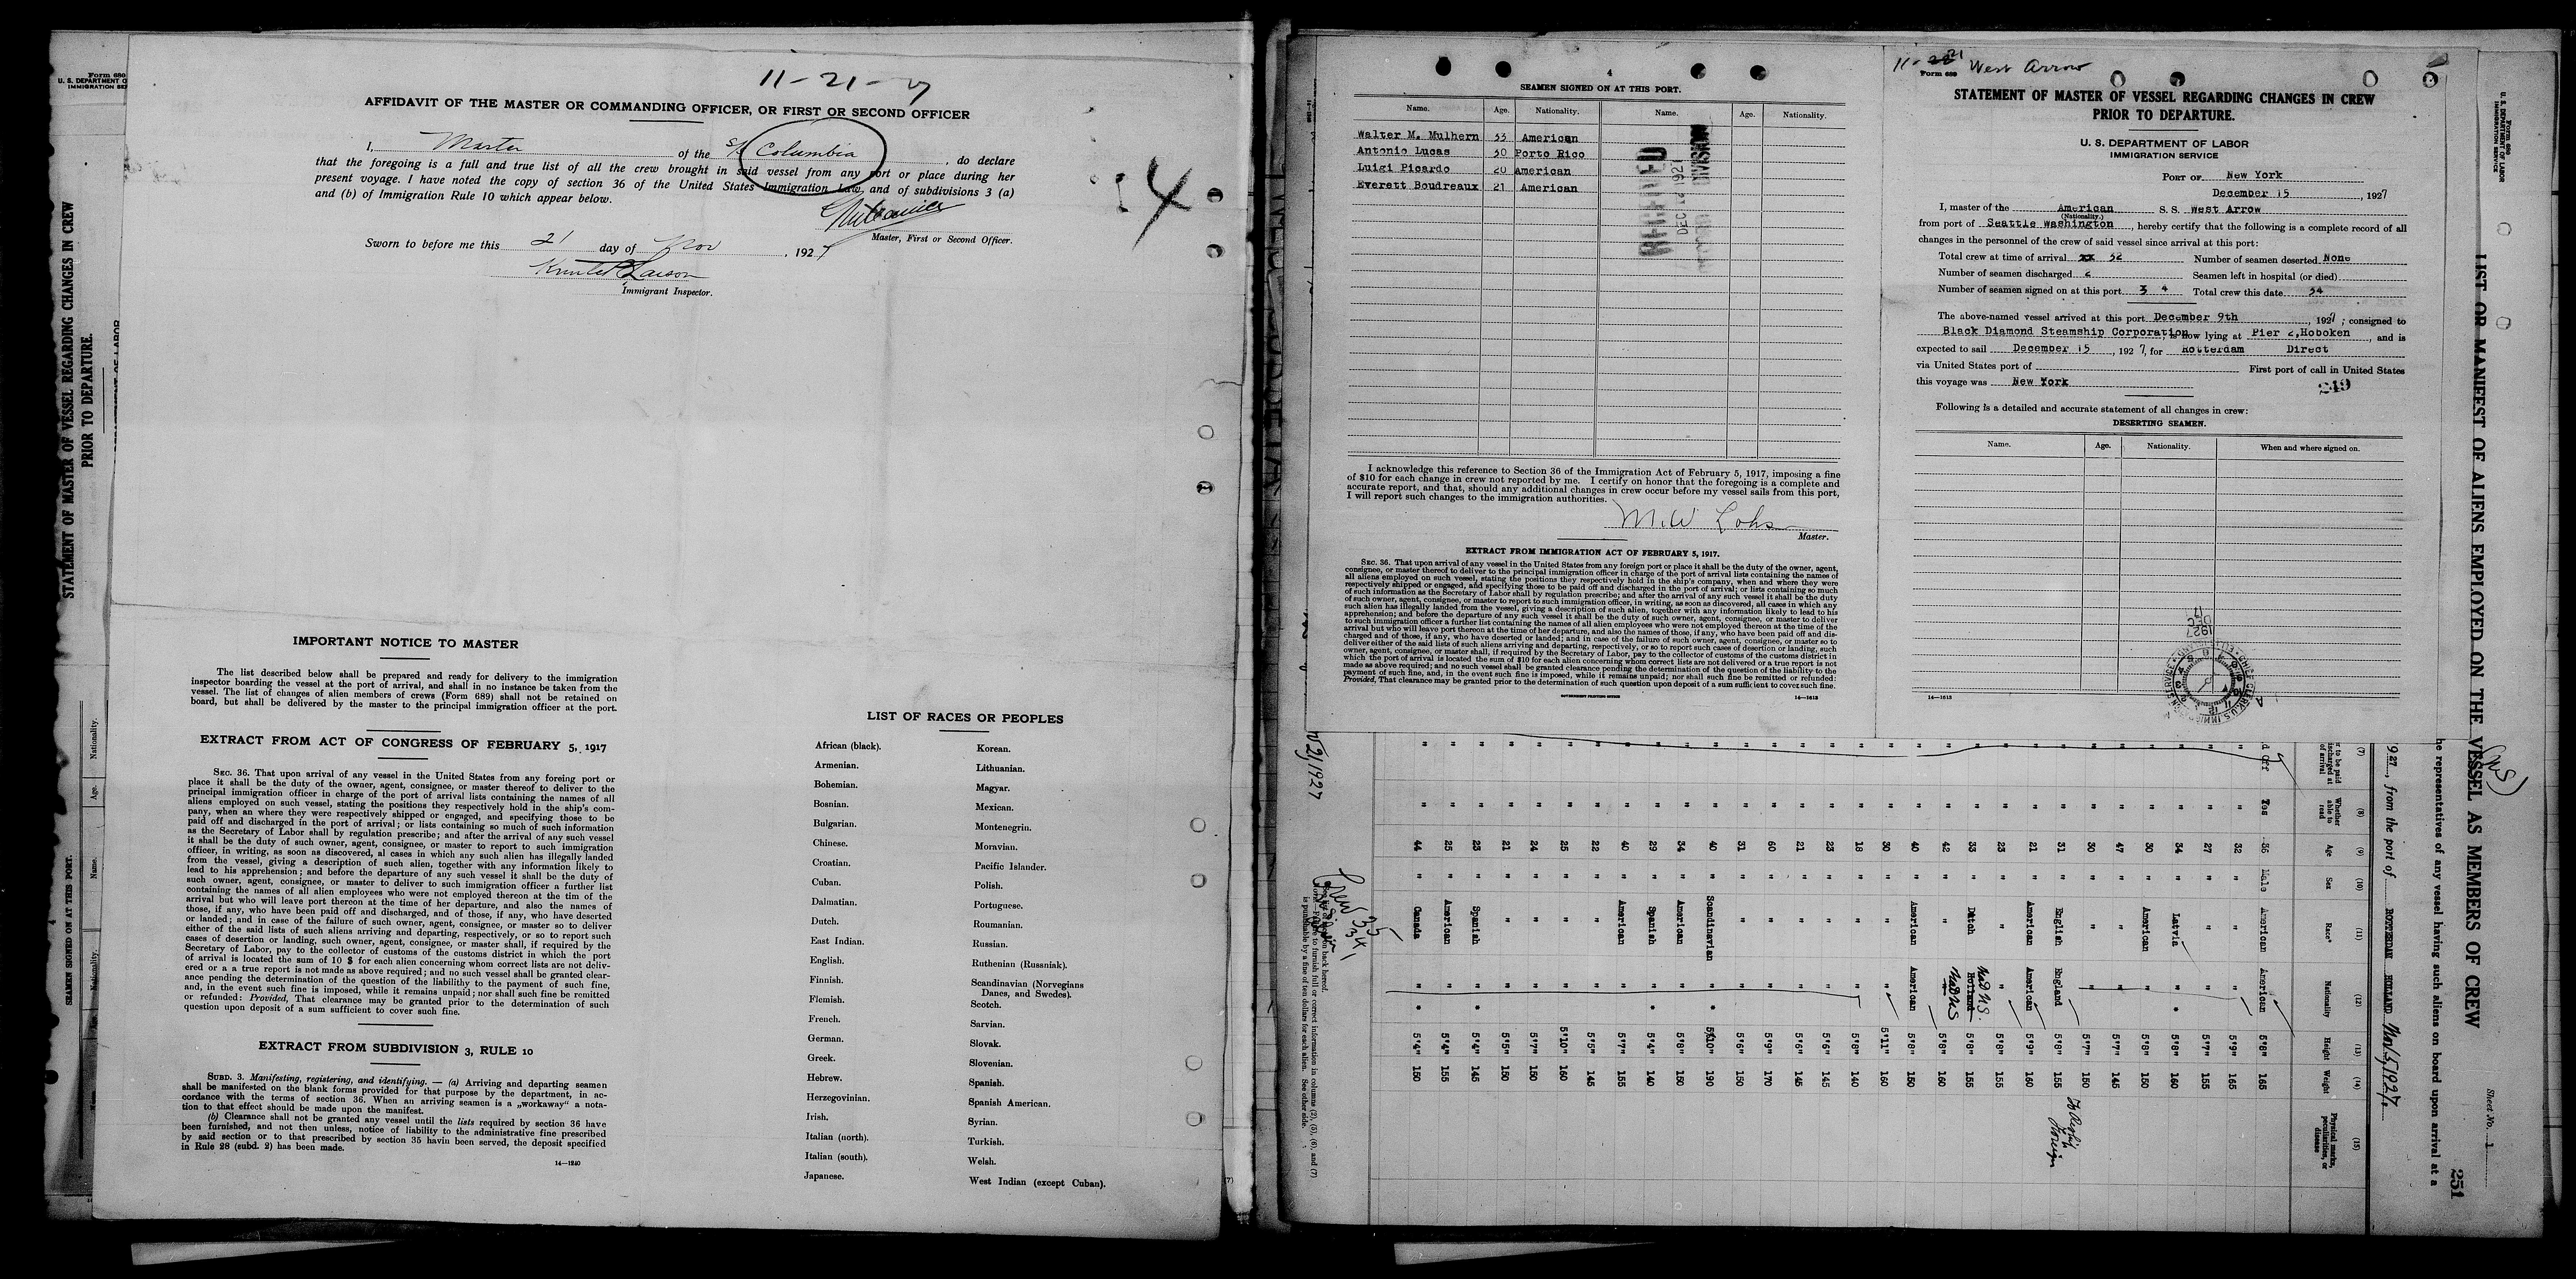 Form 680
U. S. DEPARTMENT O
IMMIGRATION SER
STATEMENT OF MASTER OF VESSEL REGARDING CHANGES IN CREW
PRIOR TO DEPARTURE.
SEAMEN SIGNED ON AT THIS PORT.
Nationality.
Age.
Name.
11-21-7
AFFIDAVIT OF THE MASTER OR COMMANDING OFFICER, OR FIRST OR SECOND OFFICER
I, Master of the S/S Columbia, do declare
that the foregoing is a full and true list of all the crew brought in said vessel from any port or place during her
present voyage. I have noted the copy of section 36 of the United States Immigration Law, and of subdivisions 3 (a)
and (b) of Immigration Rule 10 which appear below.
Master, First or Second Officer.
Sworn to before me this 21 day of Nov, 1927
Larson
Immigrant Inspector.
14
IMPORTANT NOTICE TO MASTER
The list described below shall be prepared and ready for delivery to the immigration
inspector boarding the vessel at the port of arrival, and shall in no instance be taken from the
vessel. The list of changes of alien members of crews (Form 689) shall not be retained on
board, but shall be delivered by the master to the principal immigration officer at the port.
EXTRACT FROM ACT OF CONGRESS OF FEBRUARY 5, 1917
SEC. 36. That upon arrival of any vessel in the United States from any foreing port or
place it shall be the duty of the owner, agent, consignee, or master thereof to deliver to the
principal immigration officer in charge of the port of arrival lists containing the names of all
aliens employed on such vessel, stating the positions they respectively hold in the ship's com-
pany, when an where they were respectively shipped or engaged, and specifying those to be
paid off and discharged in the port of arrival; or lists containing so much of such information
as the Secretary of Labor shall by regulation prescribe; and after the arrival of any such vessel
it shall be the duty of such owner, agent, consignee, or master to report to such immigration
officer, in writing, as soon as discovered, al cases in which any such alien has illegally landed
from the vessel, giving a description of such alien, together with any information likely to
lead to his apprehension; and before the departure of any such vessel it shall be the duty of
such owner, agent, consignee, or master to deliver to such immigration officer a further list
containing the names of all alien employees who were not employed thereon at the tim of the
arrival but who will leave port thereon at the time of her departure, and also the names of
those, if any, who have been paid off and discharged, and of those, if any, who have deserted
or landed; and in case of the failure of such owner, agent, consignee, or master so to deliver
either of the said lists of such aliens arriving and departing, respectively, or so to report such
cases of desertion or landing, such owner, agent, consignee, or master, shall, if required by the
Secretary of Labor, pay to the collector of customs of the customs district in which the port
of arrival is located the sum of 10 $ for each alien concerning whom correct lists are not deliv-
ered or a a true report is not made as above required; and no such vessel shall be granted clear-
ance pending the determination of the question of the liabilithy to the payment of such fine,
and, in the event such fine is imposed, while it remains unpaid; nor shall such fine be remitted
or refunded: Provided, That clearance may be granted prior to the determination of such
question upon deposit of a sum sufficient to cover such fine.
EXTRACT FROM SUBDIVISION 3, RULE 10
SUBD. 3. Manifesting, registering, and identifying. — (a) Arriving and departing seamen
shall be manifested on the blank forms provided for that purpose by the department, in ac-
cordance with the terms of section 36. When an arriving seamen is a „workaway“ a nota-
tion to that effect should be made upon the manifest.
(b) Clearance shall not be granted any vessel until the lists required by section 36 have
been furnished, and not then unless, notice of liability to the administrative fine prescribed
by said section or to that prescribed by section 35 havin been served, the deposit specified
in Rule 28 (subd. 2) has been made.
14—1240
LIST OF RACES OR PEOPLES
African (black).
Armenian.
Bohemian.
Bosnian.
Bulgarian.
Chinese.
Croatian.
Cuban.
Dalmatian.
Dutch.
East Indian.
English.
Finnish.
Flemish.
French.
German.
Greek.
Hebrew.
Herzegovinian.
Irish.
Italian (north).
Italian (south).
Japanese.
Korean.
Lithuanian.
Magyar.
Mexican.
Montenegrin.
Moravian.
Pacific Islander.
Polish.
Portuguese.
Roumanian.
Russian.
Ruthenian (Russniak).
Scandinavian (Norvegians
Danes, and Swedes).
Scotch.
Sarvian.
Slovak.
Slovenian.
Spanish.
Spanish American.
Syrian.
Turkish.
Welsh.
West Indian (except Cuban).
4
SEAMEN SIGNED ON AT THIS PORT.
Name. Age. Nationality. Name. Age. Nationality.
Walter M. Mulhern 33 American
Antonio Lucas 30 Porto Rico
Luigi Picardo 20 American
Everett Boudreaux 21 American
RECEIVED
DEC 1927
DIVISION
I acknowledge this reference to Section 36 of the Immigration Act of February 5, 1917, imposing a fine
of $10 for each change in crew not reported by me. I certify on honor that the foregoing is a complete and
accurate report, and that, should any additional changes in crew occur before my vessel sails from this port,
I will report such changes to the immigration authorities.
M.W Lohs
Master.
EXTRACT FROM IMMIGRATION ACT OF FEBRUARY 5, 1917.
SEC. 36. That upon arrival of any vessel in the United States from any foreign port or place it shall be the duty of the owner, agent,
consignee, or master thereof to deliver to the principal immigration officer in charge of the port of arrival lists containing the names of
all aliens employed on such vessel, stating the positions they respectively hold in the ship's company, when and where they were
respectively shipped or engaged, and specifying those to be paid off and discharged in the port of arrival; or lists containing so much
of such information as the Secretary of Labor shall by regulation prescribe; and after the arrival of any such vessel it shall be the duty
of such owner, agent, consignee, or master to report to such immigration officer, in writing, as soon as discovered, all cases in which any
such alien has illegally landed from the vessel, giving a description of such alien, together with any information likely to lead to his
apprehension; and before the departure of any such vessel it shall be the duty of such owner, agent, consignee, or master to deliver
to such immigration officer a further list containing the names of all alien employees who were not employed thereon at the time of the
arrival but who will leave port thereon at the time of her departure, and also the names of those, if any, who have been paid off and dis-
charged and of those, if any, who have deserted or landed; and in case of the failure of such owner, agent, consignee, or master so to
deliver either of the said lists of such aliens arriving and departing, respectively, or so to report such cases of desertion or landing, such
owner, agent, consignee, or master, shall, if required by the Secretary of Labor, pay to the collector of customs of the customs district in
which the port of arrival is located the sum of $10 for each alien concerning whom correct lists are not delivered or a true report is not
made as above required; and no such vessel shall be granted clearance pending the determination of the question of the liability to the
payment of such fine, and, in the event such fine is imposed, while it remains unpaid; nor shall such fine be remitted or refunded:
Provided, That clearance may be granted prior to the determination of such question upon deposit of a sum sufficient to cover such fine.
GOVERNMENT PRINTING OFFICE 14—1613
11- 21 West Arrow
Form 689
STATEMENT OF MASTER OF VESSEL REGARDING CHANGES IN CREW
PRIOR TO DEPARTURE.
U. S. DEPARTMENT OF LABOR
IMMIGRATION SERVICE
PORT OF New York
December 15, 1927
I, master of the American S. S. West Arrow
(Nationality.)
from port of Seattle Washington, hereby certify that the following is a complete record of all
changes in the personnel of the crew of said vessel since arrival at this port:
Total crew at time of arrival xx 32 Number of seamen deserted None
Number of seamen discharged 2 Seamen left in hospital (or died)
Number of seamen signed on at this port 3 4 Total crew this date 34
The above-named vessel arrived at this port December 9th, 1927; consigned to
Black Diamond Steamship Corporation, is now lying at Pier 2, Hoboken, and is
expected to sail December 15, 1927, for Rotterdam Direct
via United States port of First port of call in United States
this voyage was New York
249
Following is a detailed and accurate statement of all changes in crew:
DESERTING SEAMEN.
Name. Age. Nationality. When and where signed on.
DEC
1927
14—1613
U. S. DEPARTMENT OF LABOR
IMMIGRATION SERVICE
LIST OR MANIFEST OF ALIENS EMPLOYED ON THE VESSEL AS MEMBERS OF CREW
Sheet No. 1
251
he representatives of any vessel having such aliens on board upon arrival at a
927, from the port of ROTTERDAM HOLLAND Nov. 5, 1927.
(7) (8) (9) (10) (11) (12) (13) (14) (15)
Whether able to read Age Sex Race* Nationality Height Weight Physical marks, peculiarities, or disease
d Off Yes 36 Male American American 5'8" 165
" " 32 " " " 5'9" 165
" " 27 " " " 5'7" 155
" " 34 " Latvia " * 5'8" 160
" " 30 " American " 5'8" 150
" " 47 " " " 5'7" 145
" " 30 " " " 5'7" 150
" " 31 " English England 5'8" 155 To Reship Foreign
" " 21 " American American 5'9" 160
" " 23 " " " 5'8" 155
" " 33 " Dutch Holland 5'8" 155
" " 42 " " 5'8" 160
" " 40 " American American 5'8" 150
" " 30 " " " 5'11" 160
" " 18 " " " 5'8" 140
" " 23 " " " 5'6" 145
" " 21 " " " 5'6" 145
" " 60 " " " 5'9" 170
" " 31 " " " 5'6" 150
" " 40 " Scandinavian " * 5'10" 190
" " 34 " American " 5'8" 150
" " 29 " Spanish " * 5'4" 140
" " 40 " American " 5'7" 155
" " 22 " " " 5'5" 145
" " 25 " " " 5'10" 160
" " 24 " " " 5'7" 150
" " 21 " " " 5'5" 150
" " 23 " Spanish " * 5'4" 145
" " 25 " American " 5'4" 155
" " 44 " Canada " * 5'4" 150
21, 1927
Crew 35
to furnish full or correct information in columns (2), (5), (6), and (7)
is punishable by a fine of ten dollars for each alien. See other side.